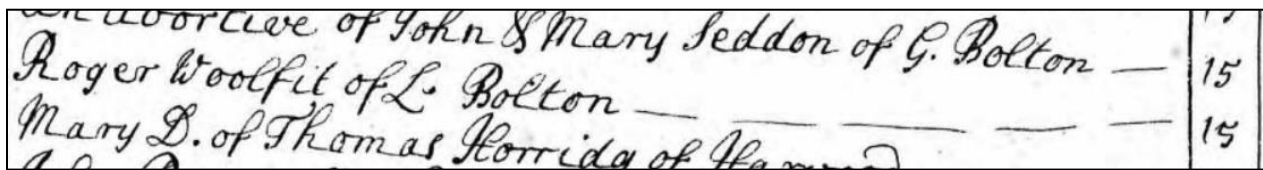 An abortive of John & Mary Seddon of G. Bolton — 15
Roger Woolfit of L. Bolton — — — — 15
Mary D. of Thomas Horridg of